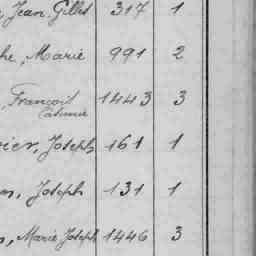 , Jean, Gilles 317 1
he, Marie 991 2
, François 1443 3
Casimir
vier, Joseph 161 1
n, Joseph 131 1
, Marie Joseph 1446 3